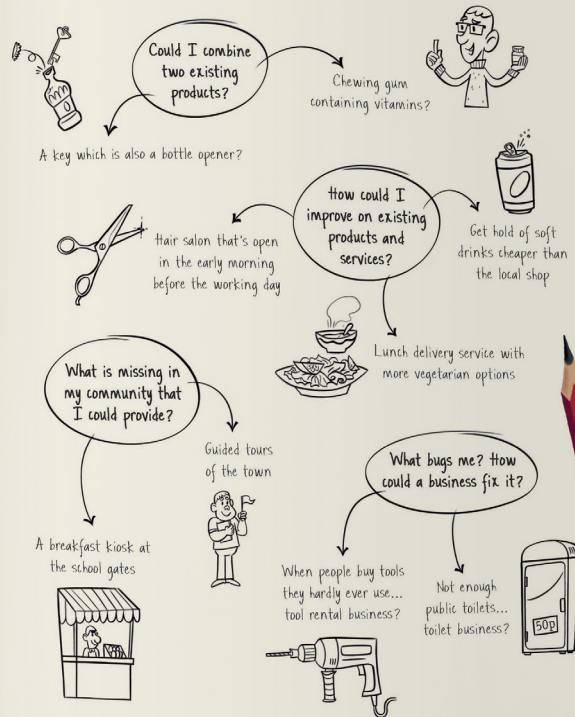 Could I combine
two existing
products?
Chewing gum
containing vitamins?
A key which is also a bottle opener?
How could I
improve on existing
products and
services?
Get hold of soft
drinks cheaper than
the local shop
Hair salon that's open
in the early morning
before the working day
Lunch delivery service with
more vegetarian options
What is missing in
my community that
I could provide?
Guided tours
of the town
A breakfast kiosk at
the school gates
What bugs me? How
could a business fix it?
When people buy tools
they hardly ever use...
tool rental business?
Not enough
public toilets...
toilet business?
50p